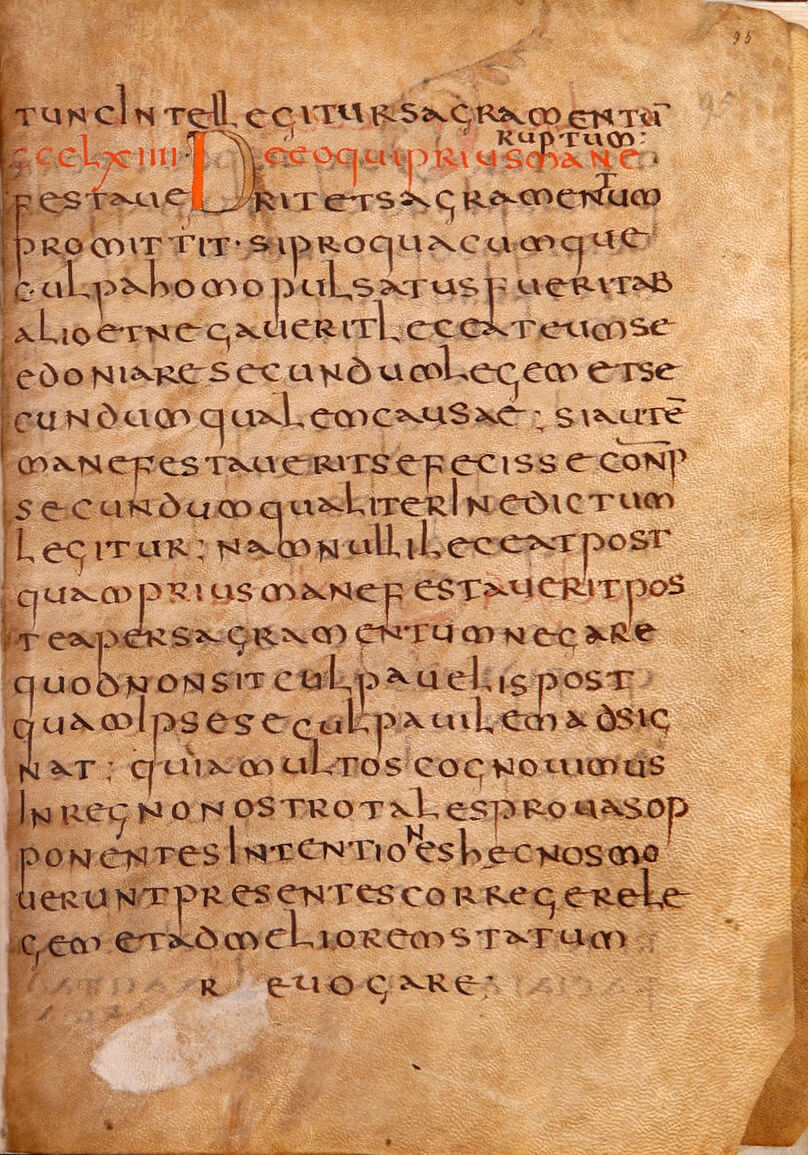 95
tunc intellegitur sagramentū
ruptum:
ccclxiiii· De eo qui prius mane
festauerit et sagramentum
promittit· si pro quacumque
culpa homo pulsatus fuerit ab
alio et negauerit leceat eum se
edoniare secundum legem et se
cundum qualem causae; si autē
manefestauerit se fecisse con̄p
secundum qualiter in edictum
legitur; nam nulli leceat post
quam prius manefestauerit pos
tea per sagramentum negare
quod non sit culpauelis post
quam ipse se culpauilem adsig
nat; quia multos cognouimus
in regno nostro tales prouas op
ponentes intentiones hec nos mo
uerunt presentes corregere le
gem et ad meliorem statum
reuogare;